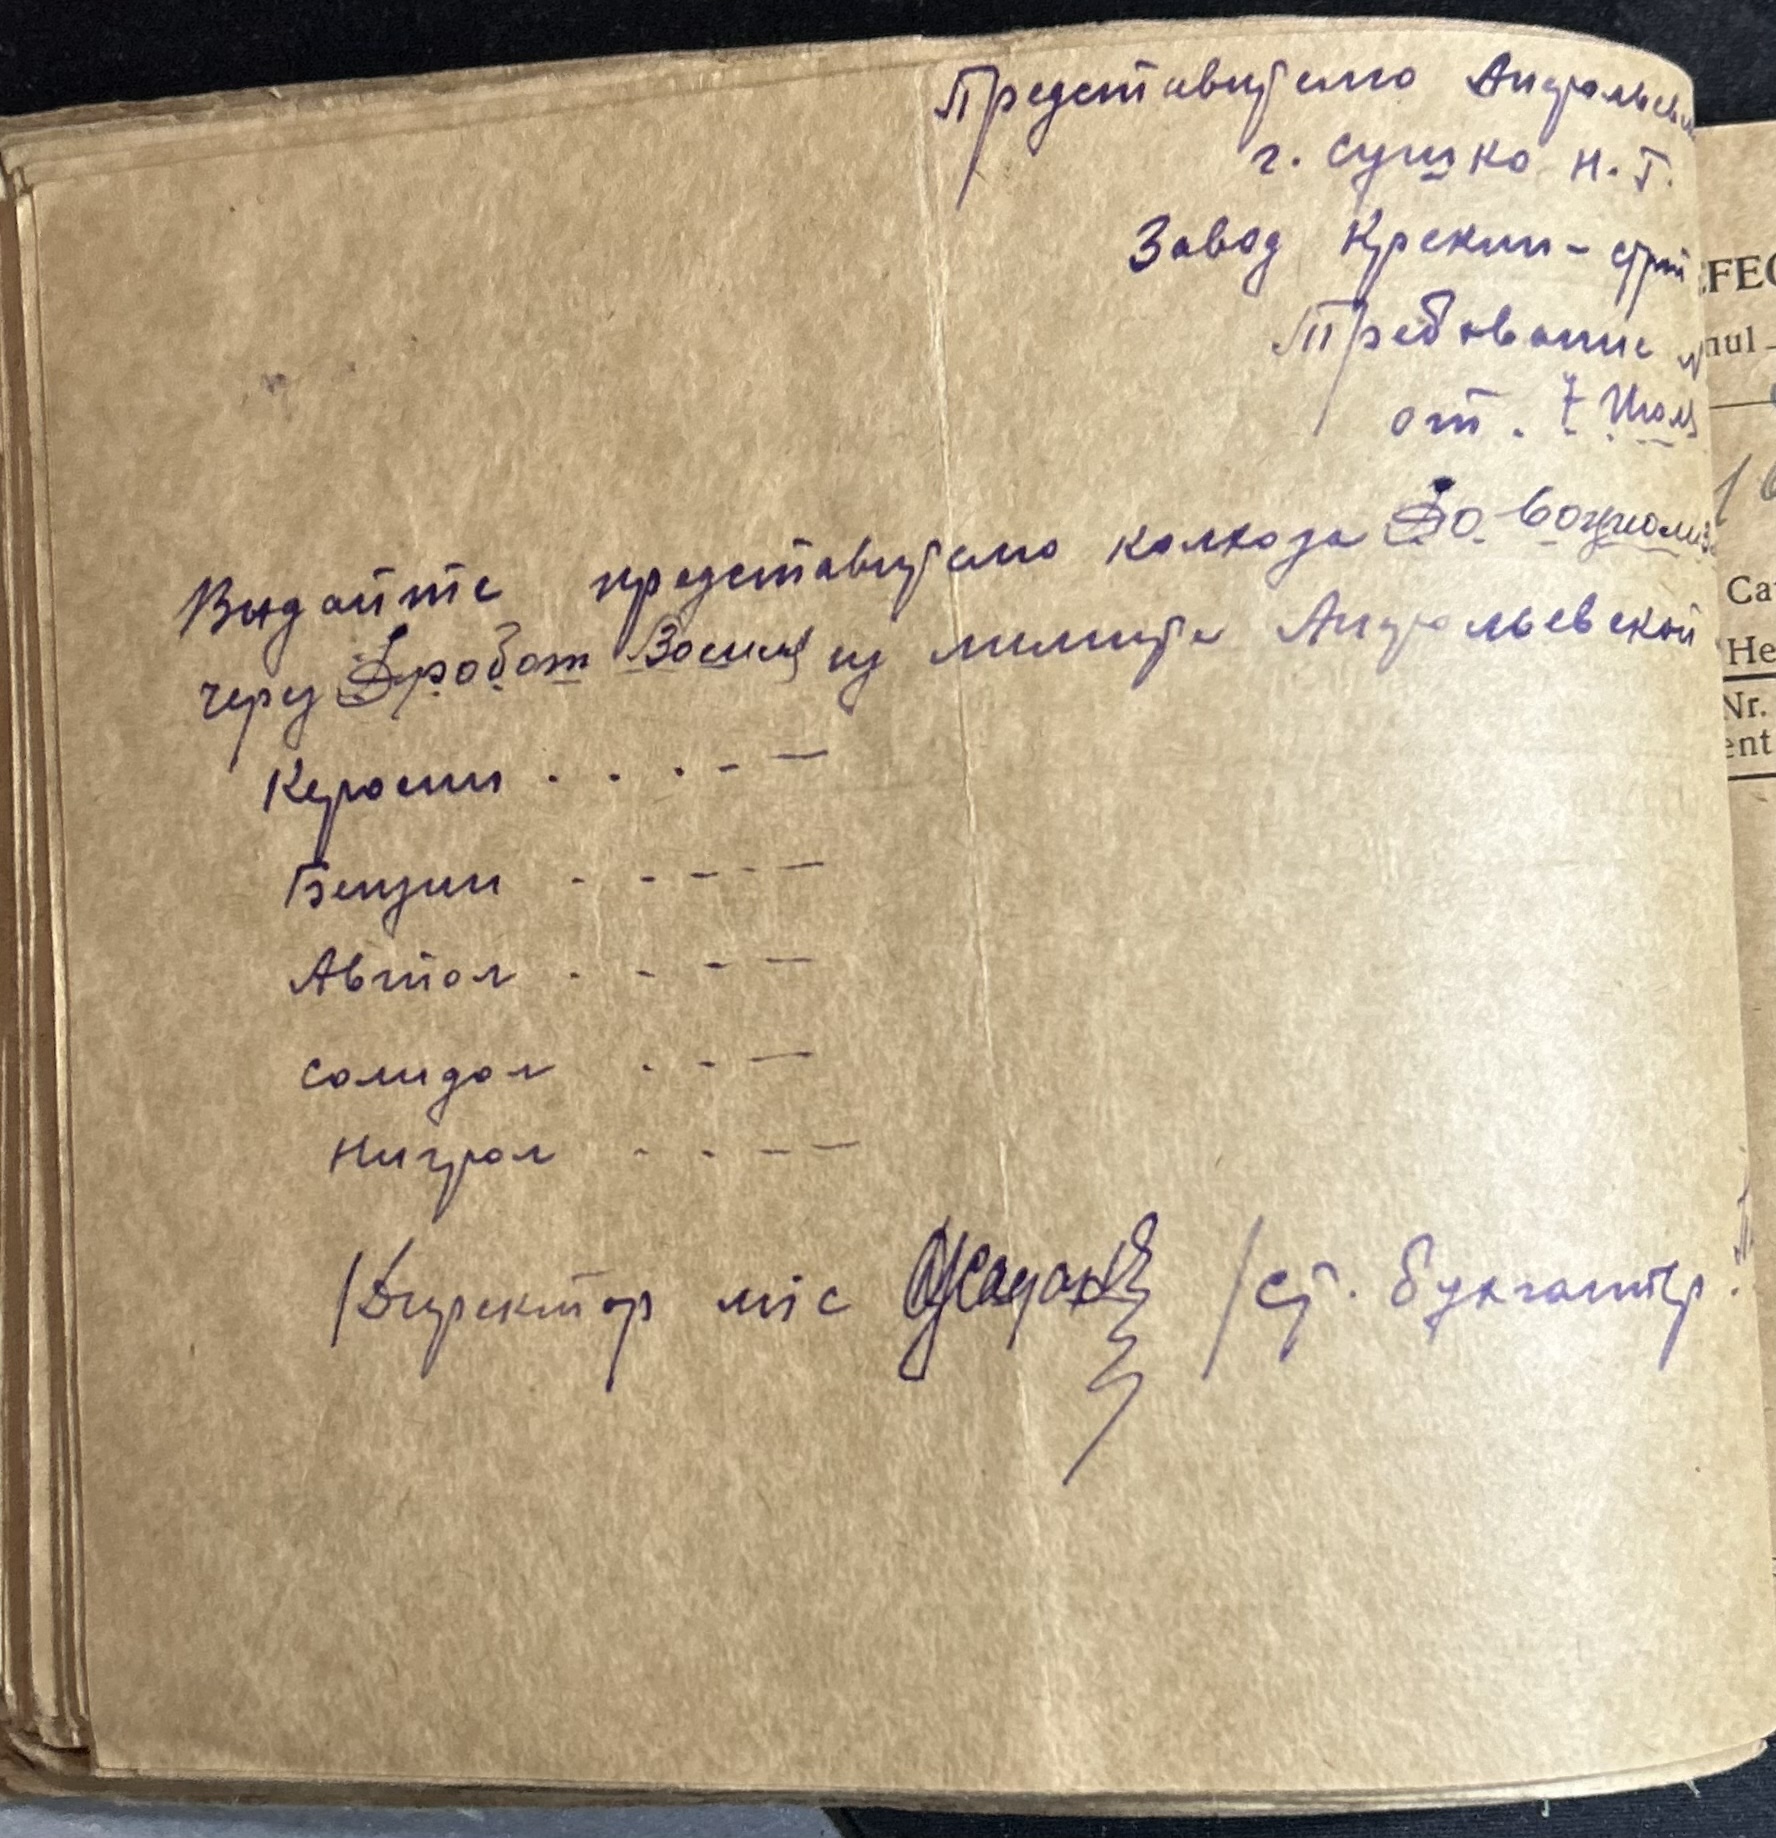 Представителю
г. Сушко Н. Т.
Завод Крекин-
Требование
от. 7 Июля
Выдайте представителю колхоза
через Дробот из лимита Андрольевской
Керосин . . . - —
Бензин . - - - —
Автол . - - —
солидол . - —
Нигрол . . - —
/Директор мтс /ст. бухгалтер.
EFEC
nul
Ca
He
Nr.
ent